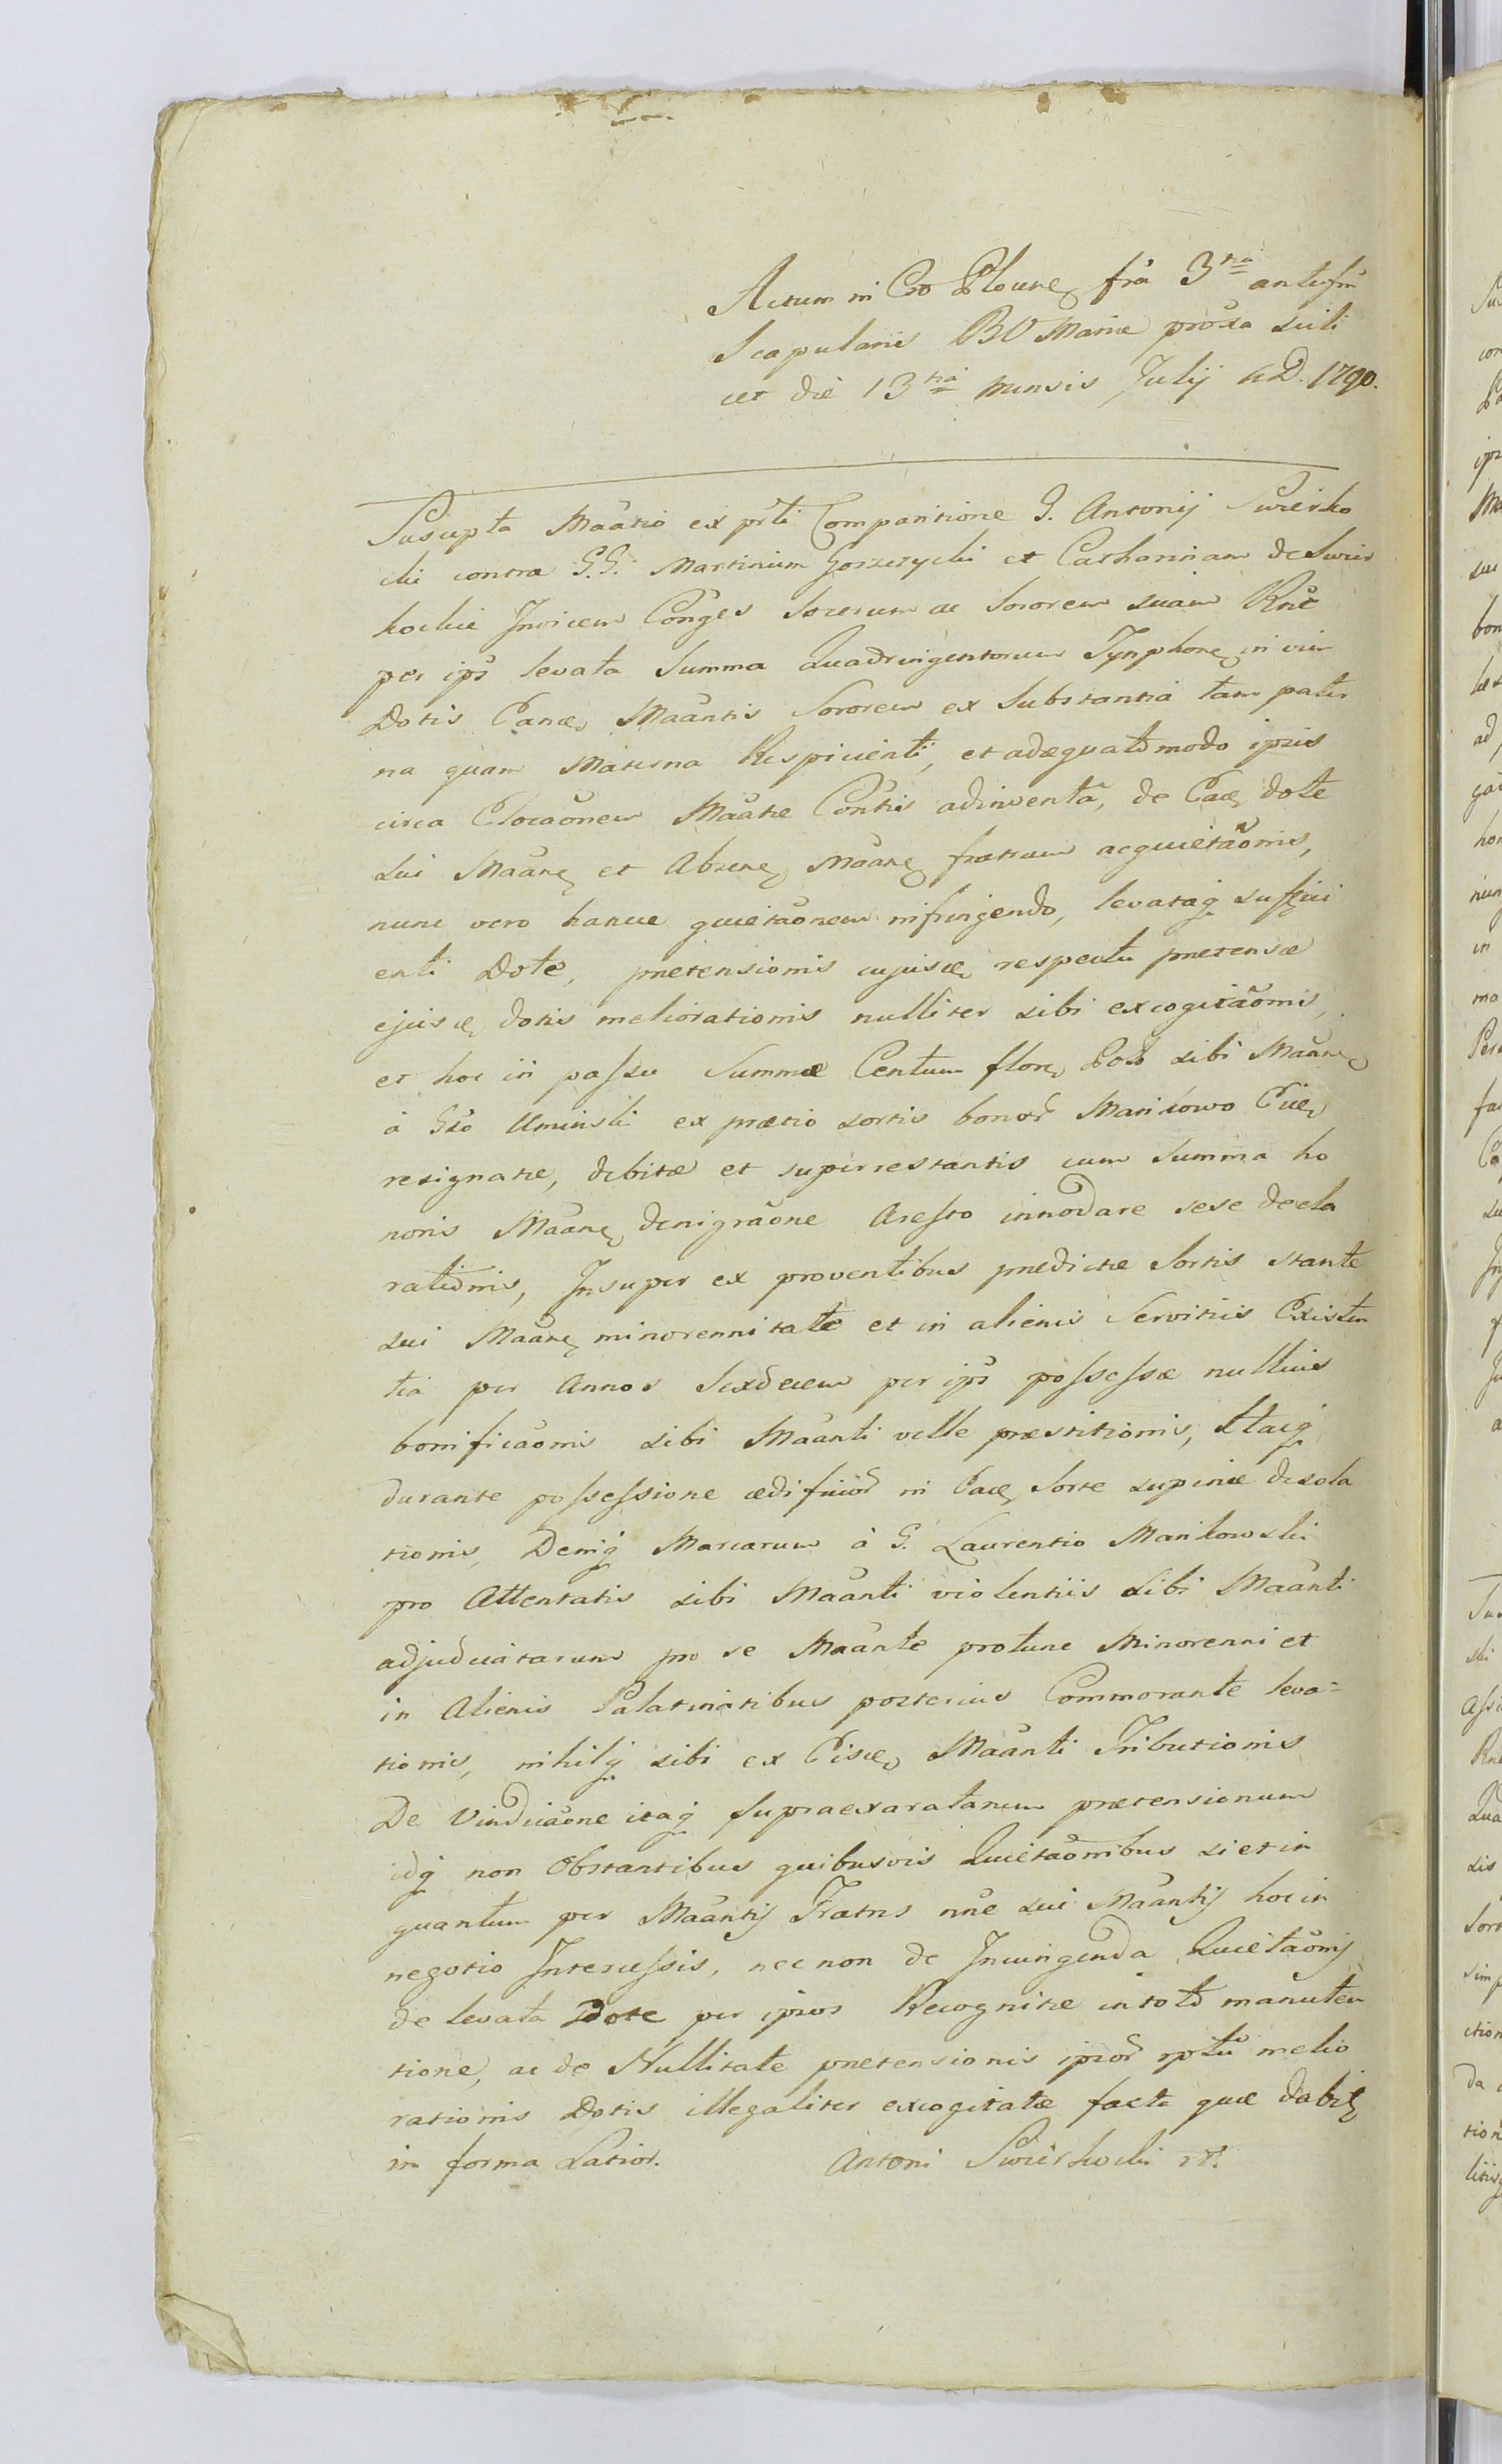 Actum in Cro Plocen, fra 3tia antefm
Scapularis BV Mariæ proxa scili
cet die 13tia mensis Julij AD. 1790.
Suscepta Maãtio ex prti Comparitione G. Antonij Swiersko
cki contra G.G. Martinum Gorzczycki et Catharinam de Swier
kockie Invicem Conges Sororem ac Sororem suam Rne
per ips levata Summa Quadringentorum Tynphon, in vim
Dotis Eanæ, Maãntis Sororem ex Substantia tam pater
na quam Materna Respicienti, et adæquato modo ipsis
circa Elocaõnem Maãtæ Contis adinventa, de Eae, dote
sui Maãn, et Absen, Maãn, fratrum acquietaõnis,
nunc vero hance quietaõnem infringendo, levataq suffici
enti Dote, prætensionis cujusce, respectu prætensæ
ejusce, dotis meliorationis nulliter sibi excogitaõnis,
et hoc in passu Summæ Centum flor, Pol sibi Maãn,
à Gso Uminski ex prætio sortis bonor Mankowo Eie,
resignatæ, debitæ et superrestantis cum Summa ho
noris Maãn, denigraõne Aresto innodare sese decla
rationis, Insuper ex proventibus prædictæ Sortis stante
sui Maãn, minorennitate et in alienis Servitiis Existen
tia per Annos Sexdecem per ips possessæ nullius
bonificaõnis sibi Maãnti velle præstitionis, Staeq
durante possessione ædificior in Eae, Sorte supinæ desola
tionis, Deniq Marcarum à G. Laurentio Mankowski
pro Attentatis sibi Maãnti violentiis sibi Maãnti
adjudicatarum pro se Maãnte protunc Minorenni et
in Alienis Palatinatibus posterius Commorante leva=
tionis, nihilq sibi ex Eisce, Maãnti Tributionis
De Vindicaõne itaq supraexaratarum prætensionum
idq non Obstantibus quibusvis Quietaõnibus si et in
quantum per Maãntis Fratris nne sui Maãntis hoc in
negotio Intercessis, nec non de Injungenda Quietaõnis
de levata Dote per ipsos Recognitæ in toto manuten
tione, ac de Nullitate prætensionis ipsor rptu melio
rationis Dotis illegaliter excogitatæ facta quæ dabit
in forma Latior. Antoni Swierskocki rr.